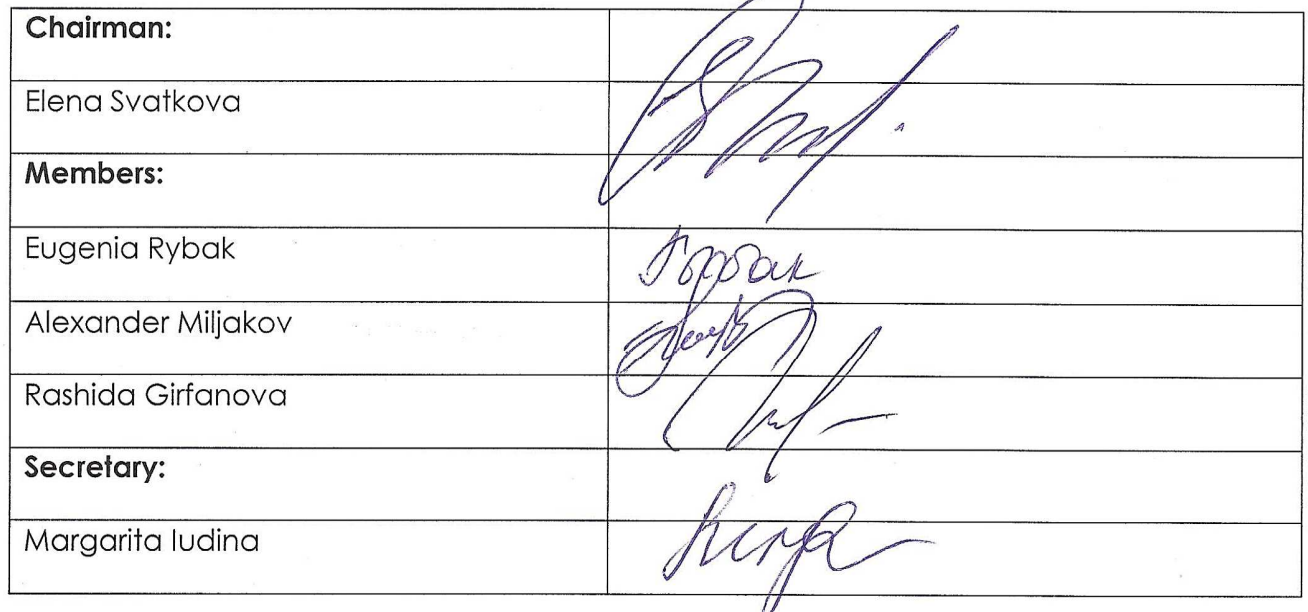 Chairman:
Elena Svatkova
Members:
Eugenia Rybak
Alexander Miljakov
Rashida Girfanova
Secretary:
Margarita Iudina